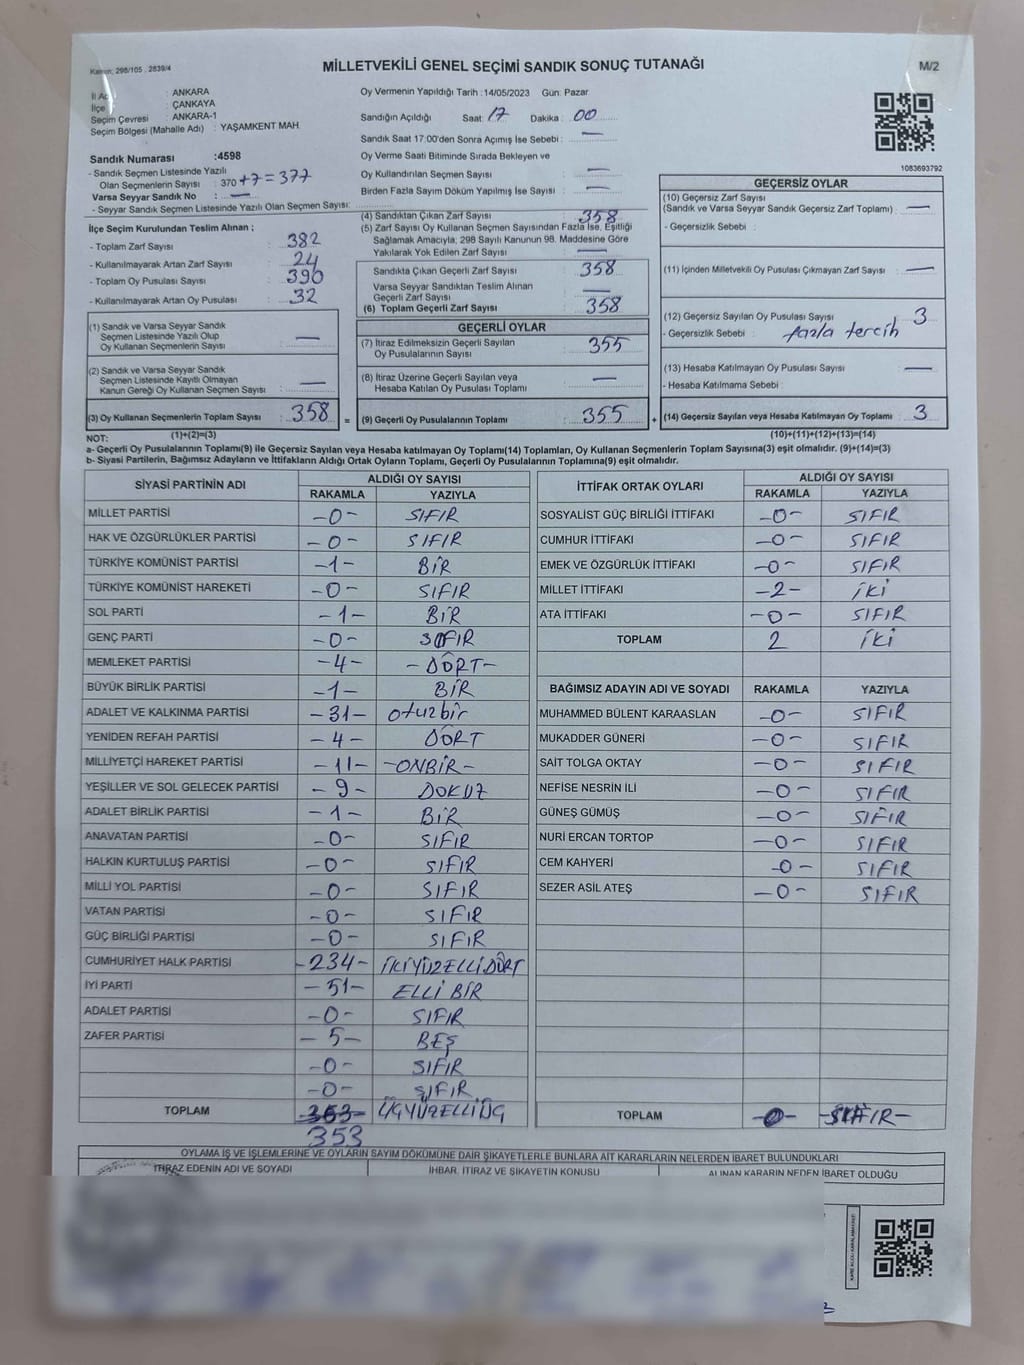 Kanun: 298/105 , 2839/4
MİLLETVEKİLİ GENEL SEÇİMİ SANDIK SONUÇ TUTANAĞI
M/2
İl Adı : ANKARA
İlçe : ÇANKAYA
Seçim Çevresi : ANKARA-1
Seçim Bölgesi (Mahalle Adı) : YAŞAMKENT MAH.
Oy Vermenin Yapıldığı Tarih :14/05/2023 Gün: Pazar
Sandığın Açıldığı Saat: 17 Dakika : 00
Sandık Saat 17:00'den Sonra Açımış İse Sebebi : —
Oy Verme Saati Bitiminde Sırada Bekleyen ve
Oy Kullandırılan Seçmen Sayısı : —
Birden Fazla Sayım Döküm Yapılmış İse Sayısı : —
1083693792
Sandık Numarası :4598
- Sandık Seçmen Listesinde Yazılı
Olan Seçmenlerin Sayısı : 370 +7=377
Varsa Seyyar Sandık No : —
- Seyyar Sandık Seçmen Listesinde Yazılı Olan Seçmen Sayısı:
İlçe Seçim Kurulundan Teslim Alınan ;
- Toplam Zarf Sayısı : 382
- Kullanılmayarak Artan Zarf Sayısı : 24
- Toplam Oy Pusulası Sayısı : 390
- Kullanılmayarak Artan Oy Pusulası : 32
(1) Sandık ve Varsa Seyyar Sandık
Seçmen Listesinde Yazılı Olup
Oy Kullanan Seçmenlerin Sayısı : —
(2) Sandık ve Varsa Seyyar Sandık
Seçmen Listesinde Kayıtlı Olmayan
Kanun Gereği Oy Kullanan Seçmen Sayısı : —
(3) Oy Kullanan Seçmenlerin Toplam Sayısı : 358 =
(1)+(2)=(3)
(4) Sandıktan Çıkan Zarf Sayısı : 358
(5) Zarf Sayısı Oy Kullanan Seçmen Sayısından Fazla İse, Eşitliği
Sağlamak Amacıyla; 298 Sayılı Kanunun 98. Maddesine Göre
Yakılarak Yok Edilen Zarf Sayısı : —
Sandıkta Çıkan Geçerli Zarf Sayısı : 358
Varsa Seyyar Sandıktan Teslim Alınan
Geçerli Zarf Sayısı : —
(6) Toplam Geçerli Zarf Sayısı : 358
GEÇERLİ OYLAR
(7) İtiraz Edilmeksizin Geçerli Sayılan
Oy Pusulalarının Sayısı : 355
(8) İtiraz Üzerine Geçerli Sayılan veya
Hesaba Katılan Oy Pusulası Toplamı : —
(9) Geçerli Oy Pusulalarının Toplamı : 355 +
GEÇERSİZ OYLAR
(10) Geçersiz Zarf Sayısı
(Sandık ve Varsa Seyyar Sandık Geçersiz Zarf Toplamı) : —
- Geçersizlik Sebebi :
(11) İçinden Milletvekili Oy Pusulası Çıkmayan Zarf Sayısı : —
(12) Geçersiz Sayılan Oy Pusulası Sayısı : 3
- Geçersizlik Sebebi : fazla tercih
(13) Hesaba Katılmayan Oy Pusulası Sayısı : —
- Hesaba Katılmama Sebebi :
(14) Geçersiz Sayılan veya Hesaba Katılmayan Oy Toplamı : 3
(10)+(11)+(12)+(13)=(14)
NOT:
a- Geçerli Oy Pusulalarının Toplamı(9) ile Geçersiz Sayılan veya Hesaba katılmayan Oy Toplamı(14) Toplamları, Oy Kullanan Seçmenlerin Toplam Sayısına(3) eşit olmalıdır. (9)+(14)=(3)
b- Siyasi Partilerin, Bağımsız Adayların ve İttifakların Aldığı Ortak Oyların Toplamı, Geçerli Oy Pusulalarının Toplamına(9) eşit olmalıdır.
SİYASİ PARTİNİN ADI ALDIĞI OY SAYISI
RAKAMLA YAZIYLA
MİLLET PARTİSİ -0- SIFIR
HAK VE ÖZGÜRLÜKLER PARTİSİ -0- SIFIR
TÜRKİYE KOMÜNİST PARTİSİ -1- BİR
TÜRKİYE KOMÜNİST HAREKETİ -0- SIFIR
SOL PARTİ -1- BİR
GENÇ PARTİ -0-
MEMLEKET PARTİSİ -4- -DÖRT-
BÜYÜK BİRLİK PARTİSİ -1- BİR
ADALET VE KALKINMA PARTİSİ -31- otuzbir
YENİDEN REFAH PARTİSİ -4- DÖRT
MİLLİYETÇİ HAREKET PARTİSİ -11- -ONBİR-
YEŞİLLER VE SOL GELECEK PARTİSİ -9- DOKUZ
ADALET BİRLİK PARTİSİ -1- BİR
ANAVATAN PARTİSİ -0- SIFIR
HALKIN KURTULUŞ PARTİSİ -0- SIFIR
MİLLİ YOL PARTİSİ -0- SIFIR
VATAN PARTİSİ -0- SIFIR
GÜÇ BİRLİĞİ PARTİSİ -0- SIFIR
CUMHURİYET HALK PARTİSİ -234- İKİYÜZELLİDÖRT
İYİ PARTİ -51- ELLİ BİR
ADALET PARTİSİ -0- SIFIR
ZAFER PARTİSİ -5- BEŞ
-0- SIFIR
-0- SIFIR
TOPLAM ÜÇYÜZELLİÜÇ
353
İTTİFAK ORTAK OYLARI ALDIĞI OY SAYISI
RAKAMLA YAZIYLA
SOSYALİST GÜÇ BİRLİĞİ İTTİFAKI -0- SIFIR
CUMHUR İTTİFAKI -0- SIFIR
EMEK VE ÖZGÜRLÜK İTTİFAKI -0- SIFIR
MİLLET İTTİFAKI -2- İKİ
ATA İTTİFAKI -0- SIFIR
TOPLAM 2 İKİ
BAĞIMSIZ ADAYIN ADI VE SOYADI RAKAMLA YAZIYLA
MUHAMMED BÜLENT KARAASLAN -0- SIFIR
MUKADDER GÜNERİ -0- SIFIR
SAİT TOLGA OKTAY -0- SIFIR
NEFİSE NESRİN İLİ -0- SIFIR
GÜNEŞ GÜMÜŞ -0- SIFIR
NURİ ERCAN TORTOP -0- SIFIR
CEM KAHYERİ -0- SIFIR
SEZER ASİL ATEŞ -0- SIFIR
TOPLAM -0- -SIFIR-
OYLAMA İŞ VE İŞLEMLERİNE VE OYLARIN SAYIM DÖKÜMÜNE DAİR ŞİKAYETLERLE BUNLARA AİT KARARLARIN NELERDEN İBARET BULUNDUKLARI
İTİRAZ EDENİN ADI VE SOYADI İHBAR, İTİRAZ VE ŞİKAYETİN KONUSU ALINAN KARARIN NEDEN İBARET OLDUĞU